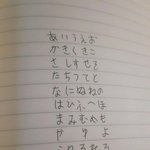 あいうえお
かきくきこ
さしすせそ
たちつてと
なにぬねの
はひふへほ
まみむめも
やゆよ